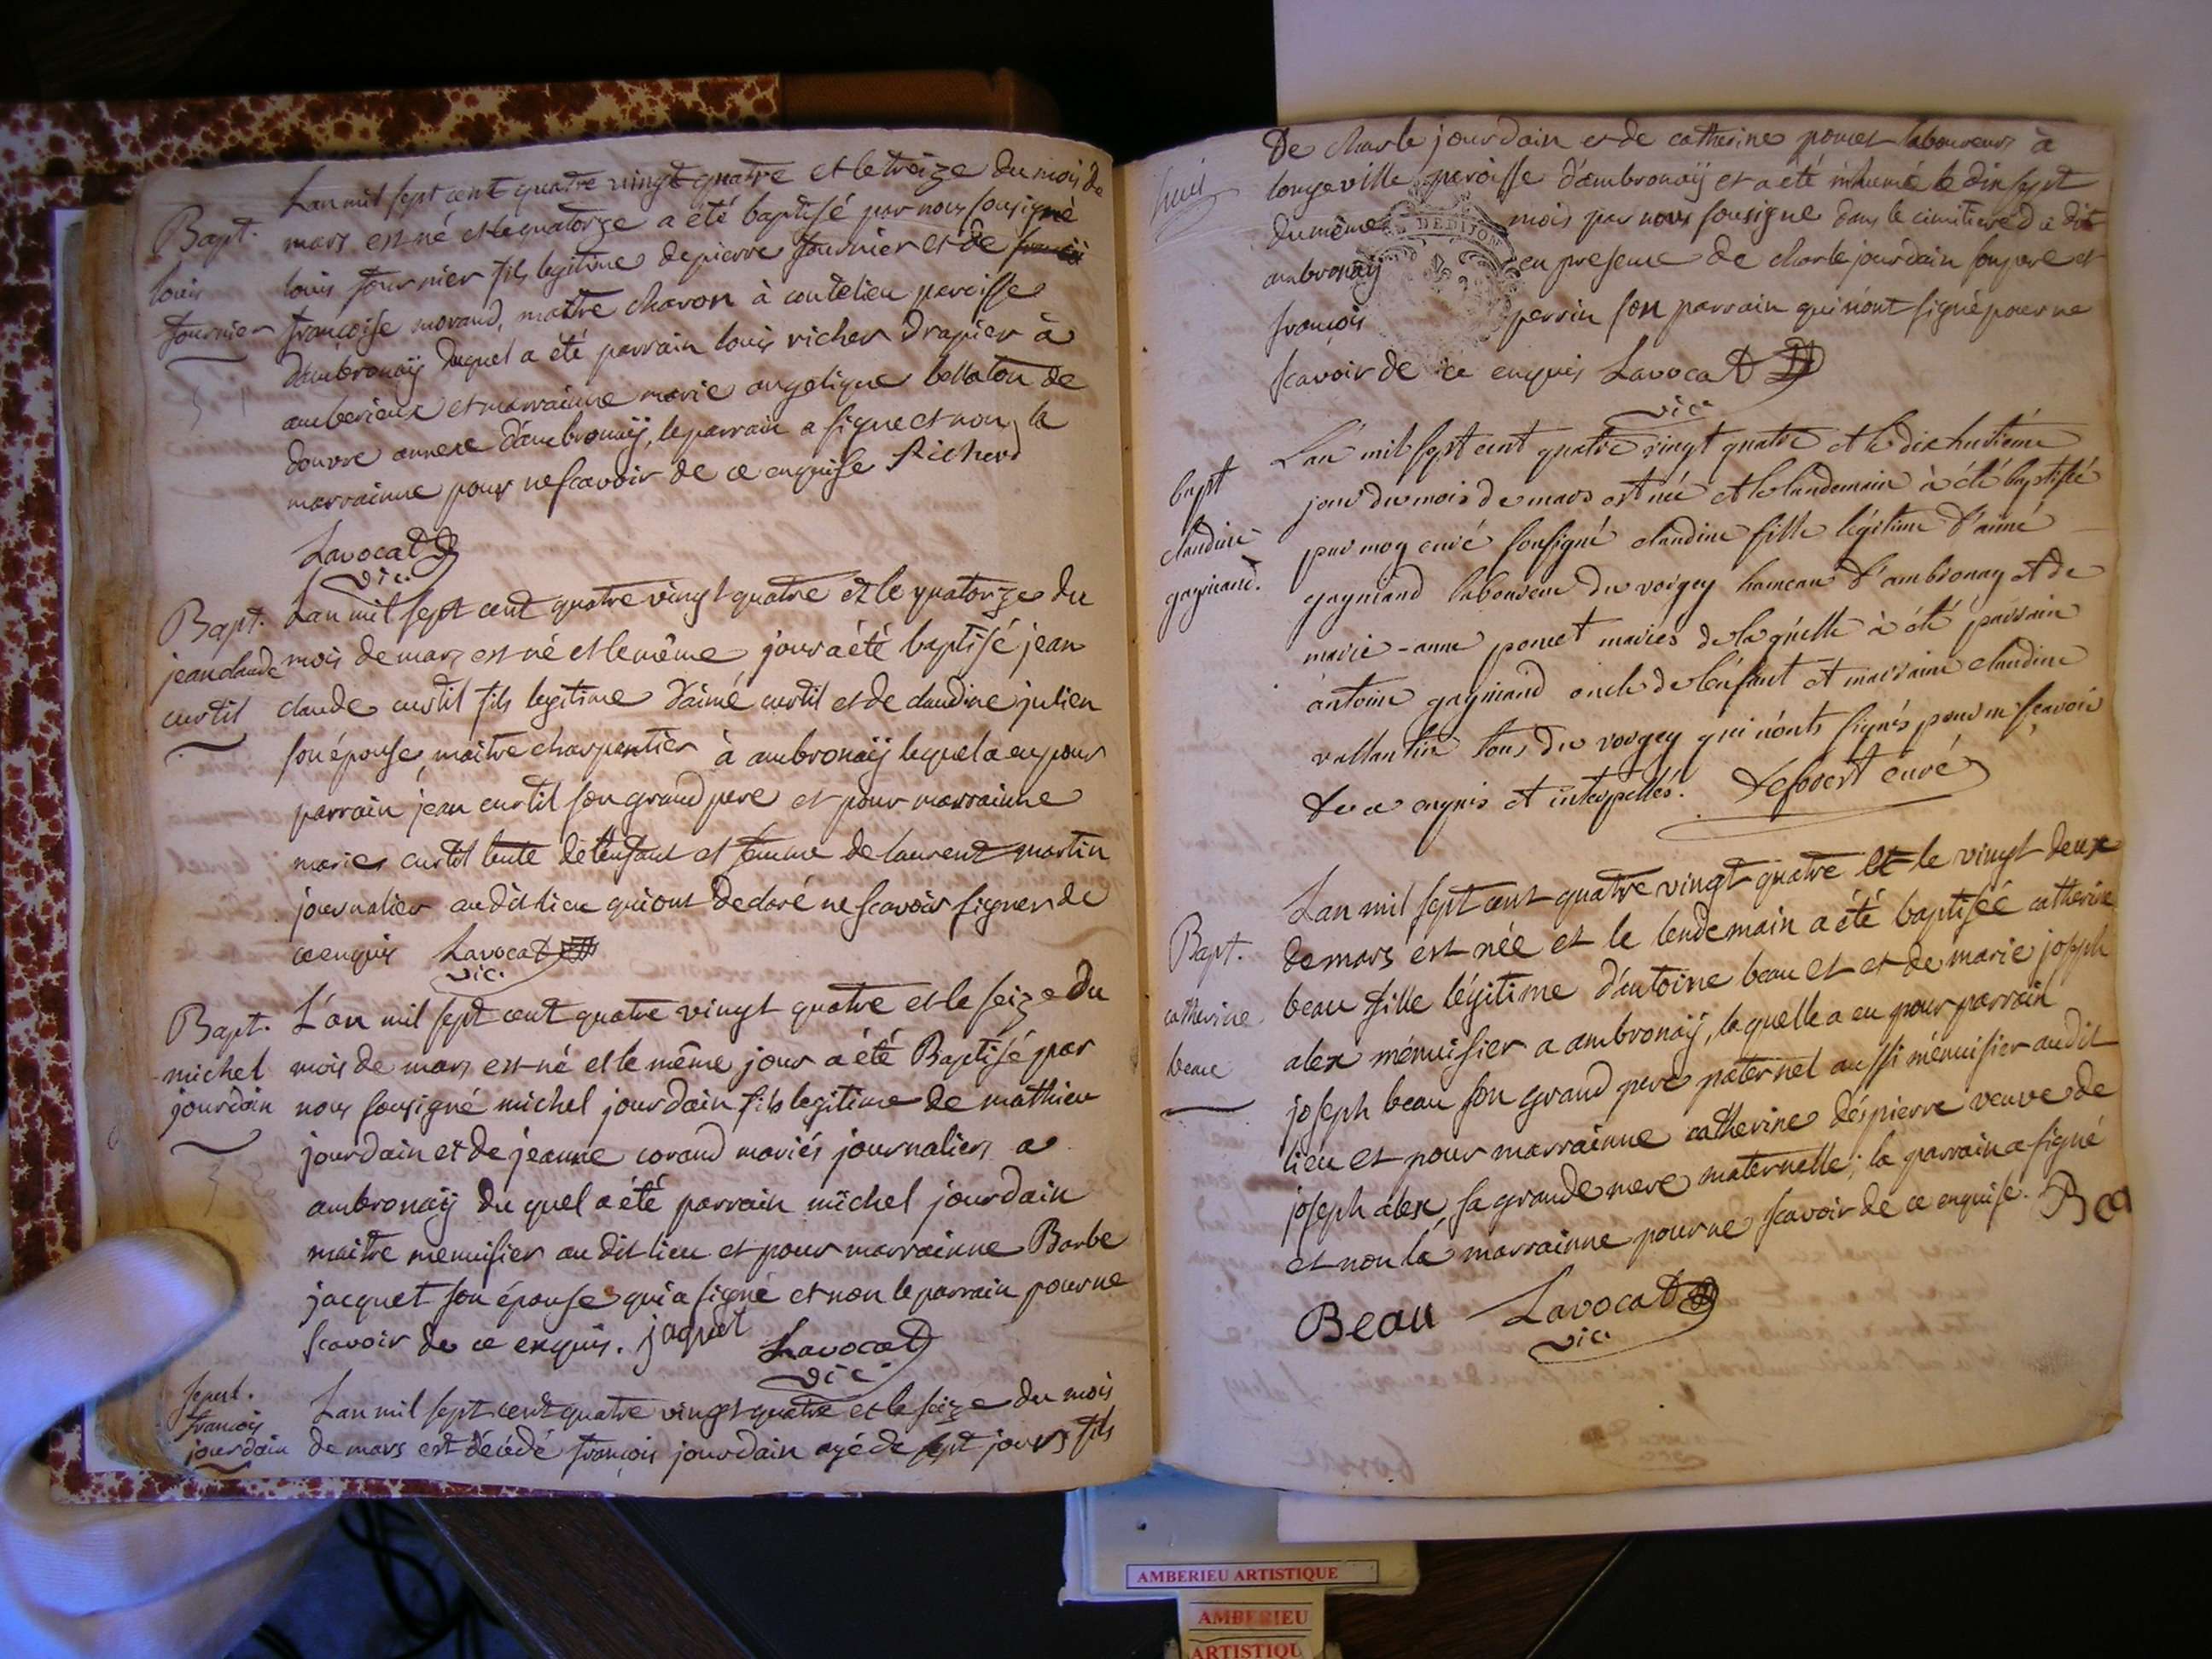 Lan mil sept cent quatre vingt quatre et le treize du mois de
Bapt. mars est né et le quatorze a été baptisé par nous sousigné
louis louis fournier fils legitime de pierre fournier et de
fournier françoise morand, maitre charon à coutelieu paroisse
d'ambronaÿ duquel a été parrain louis richer drapier à
amberieux et marrainne marie angelique bellaton de
douvre annexe d'ambronaÿ, le parrain a signe et non la
marrainne pour ne scavoir de ce enquise Richerd
Lavocat
vic.
Bapt. Lan mil sept cent quatre vingt quatre et le quatorze du
jean claude mois de mars est né et le même jour a été baptisé jean
curtil claude curtil fils legitime d'aimé curtil et de claudine julien
son épouse, maitre charpentier à ambronaÿ lequel a eu pour
parrain jean curtil son grand pere et pour marrainne
marie curtil tente de l'enfant et femme de laurent martin
journalier audit lieu qui ont declaré ne scavoir signer de
ce enquis Lavocat
vic.
Bapt. L'an mil sept cent quatre vingt quatre et le seize du
michel mois de mars est né et le même jour a été Baptisé par
jourdain nous sousigné michel jourdain fils legitime de mathieu
jourdain et de jeanne corand mariés journaliers a
ambronaÿ du quel a été parrain michel jourdain
maitre menuisier au dit lieu et pour marrainne Barbe
jacquet son épouse qui a signé et non le parrain pour ne
scavoir de ce enquis. jaquet Lavocat
vic
sepult.
françois Lan mil sept cent quatre vingt quatre et le seize du mois
jourdain de mars est décédé françois jourdain agé de sept jours fils
De charle jourdain et de catherine poncet laboureurs à
huit longeville paroisse d'ambronaÿ et a été inhumé le dix sept
du même mois par nous sousigne dans le cimitiere du dit
ambronaÿ en presence de charle jourdain son pere et
françois perrin son parrain qui n'ont signé pour ne
scavoir de ce enquis Lavocat
vice
DE DIJON
L'an mil sept cent quatre vingt quatre et le dix huitième
bapt jour du mois de mars est née et le landemain à été baptisée
claudine par moy curé sousigné claudine fille légitime d'aimé
gagniand. gagniand laboureur du voigey hameau d'ambronay et de
marie-anne poncet mariés de laquelle à été parrain
antoine gagniand oncle de l'enfant et marraine claudine
vallantin tous du vorgey qui n'onts signés pour ne scavoir
de ce enquis et interpellés. curé
Lan mil sept cent quatre vingt quatre et le vingt deux
Bapt. de mars est née et le lendemain a été baptisée catherine
catherine beau fille légitime d'antoine beau et et de marie joseph
beau alex ménuisier a ambronaÿ, laquelle a eu pour parrain
joseph beau son grand pere paternel aussi ménuisier au dit
lieu et pour marrainne catherine déspierre veuve de
joseph alex, sa grande mere maternelle; la parrain a signé
et non la marrainne pour ne scavoir de ce enquise. Bea
Beau Lavocat
vic.
AMBERIEU ARTISTIQUE
AMBERIEU
ARTISTIQU